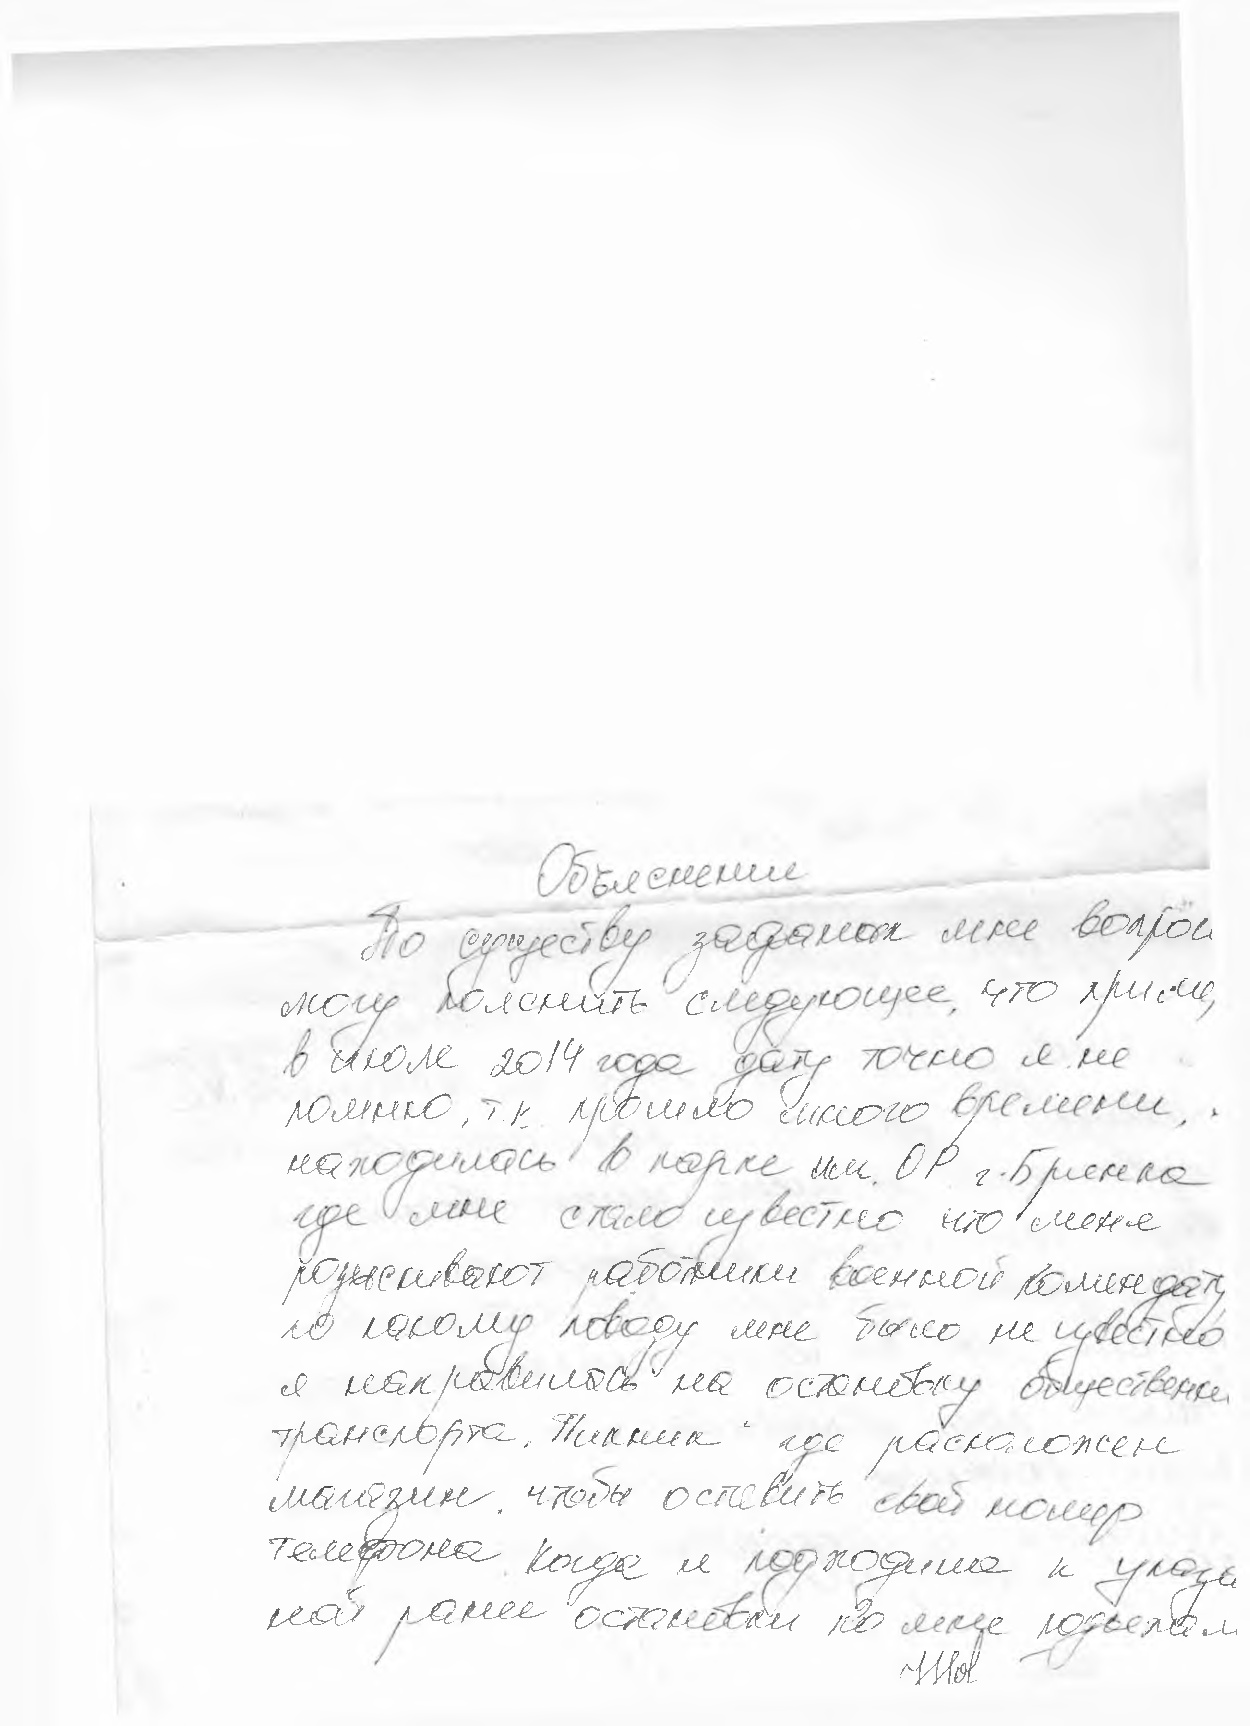 Объяснение
По существу заданых мне вопрос
могу пояснить следующее, что
в июле 2014 года дату точно я не
помню, т.к. прошло много времени,
находилась в парке им. ОР г. Брянка
где мне стало известно что меня
розыскивают работники военной комендату
по какому поводу мне было не известно
я направилась на остановку общественн
транспорта "Пикник" где расположен
магазин, чтобы оставить свой номер
телефона. Когда я подходила к указа
ной ранее остановки ко мне подъехал